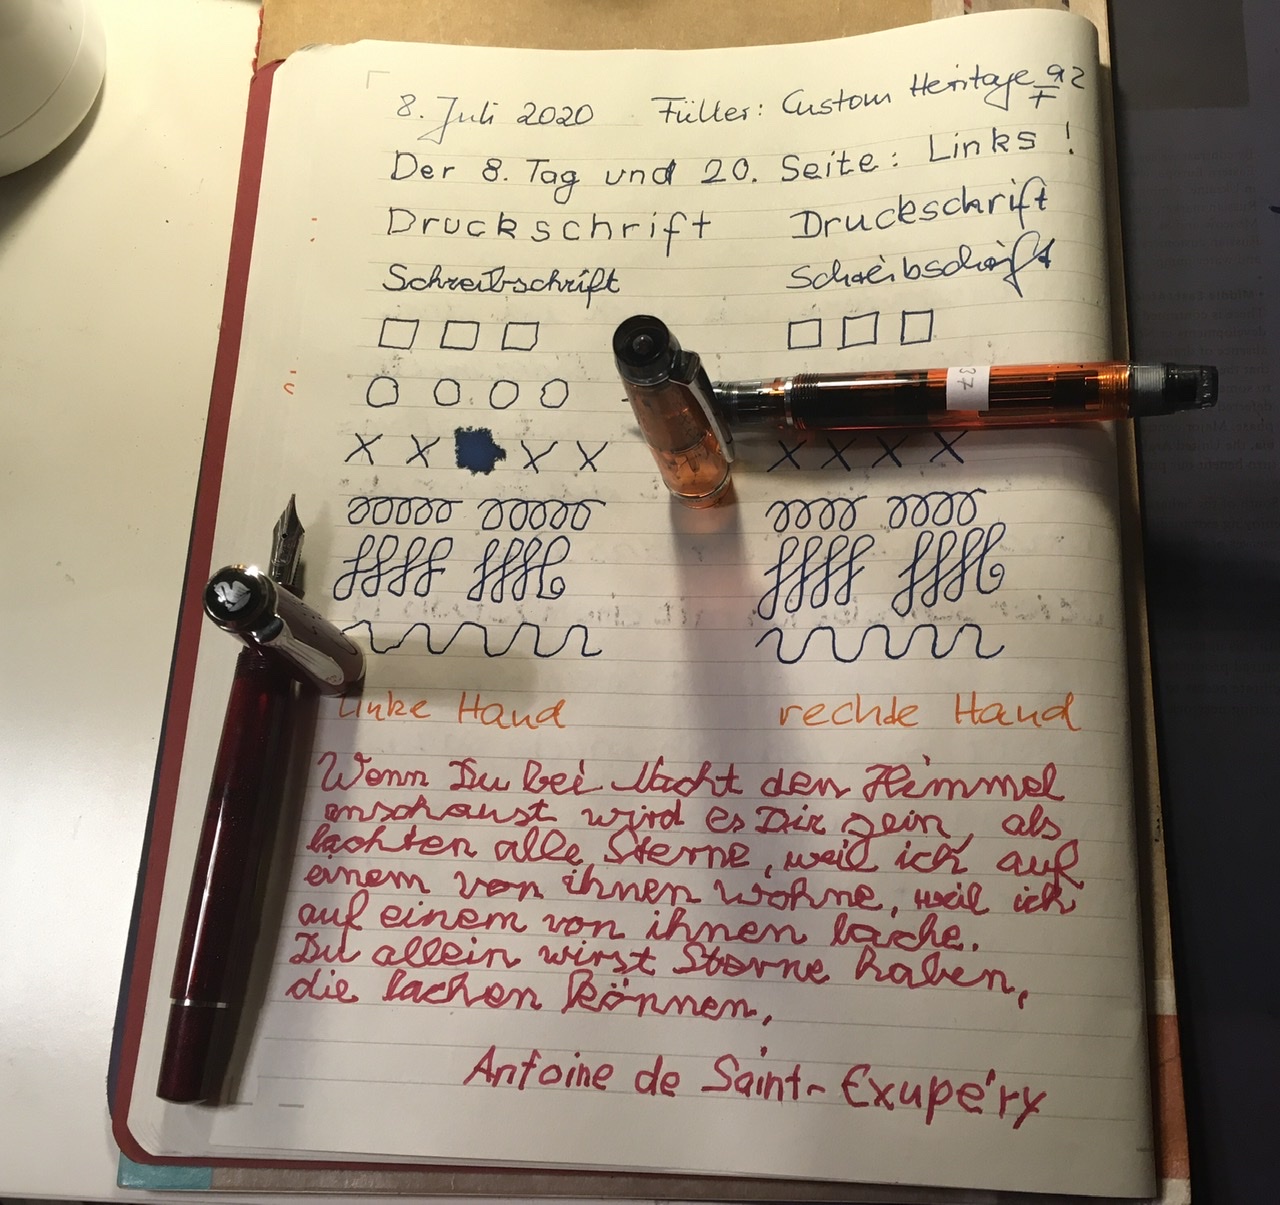 8. Juli 2020 Füller: Custom Heritage 92 F
Der 8. Tag und 20. Seite: Links!
Druckschrift Druckschrift
Schreibschrift Schreibschrift
X X X X X X X X
linke Hand rechte Hand
Wenn Du bei Nacht den Himmel
anschaust wird es Dir sein, als
lachten alle Sterne, weil ich auf
einem von ihnen wohne, weil ich
auf einem von ihnen lache.
Du allein wirst Sterne haben,
die lachen können.
Antoine de Saint-Exupéry
37